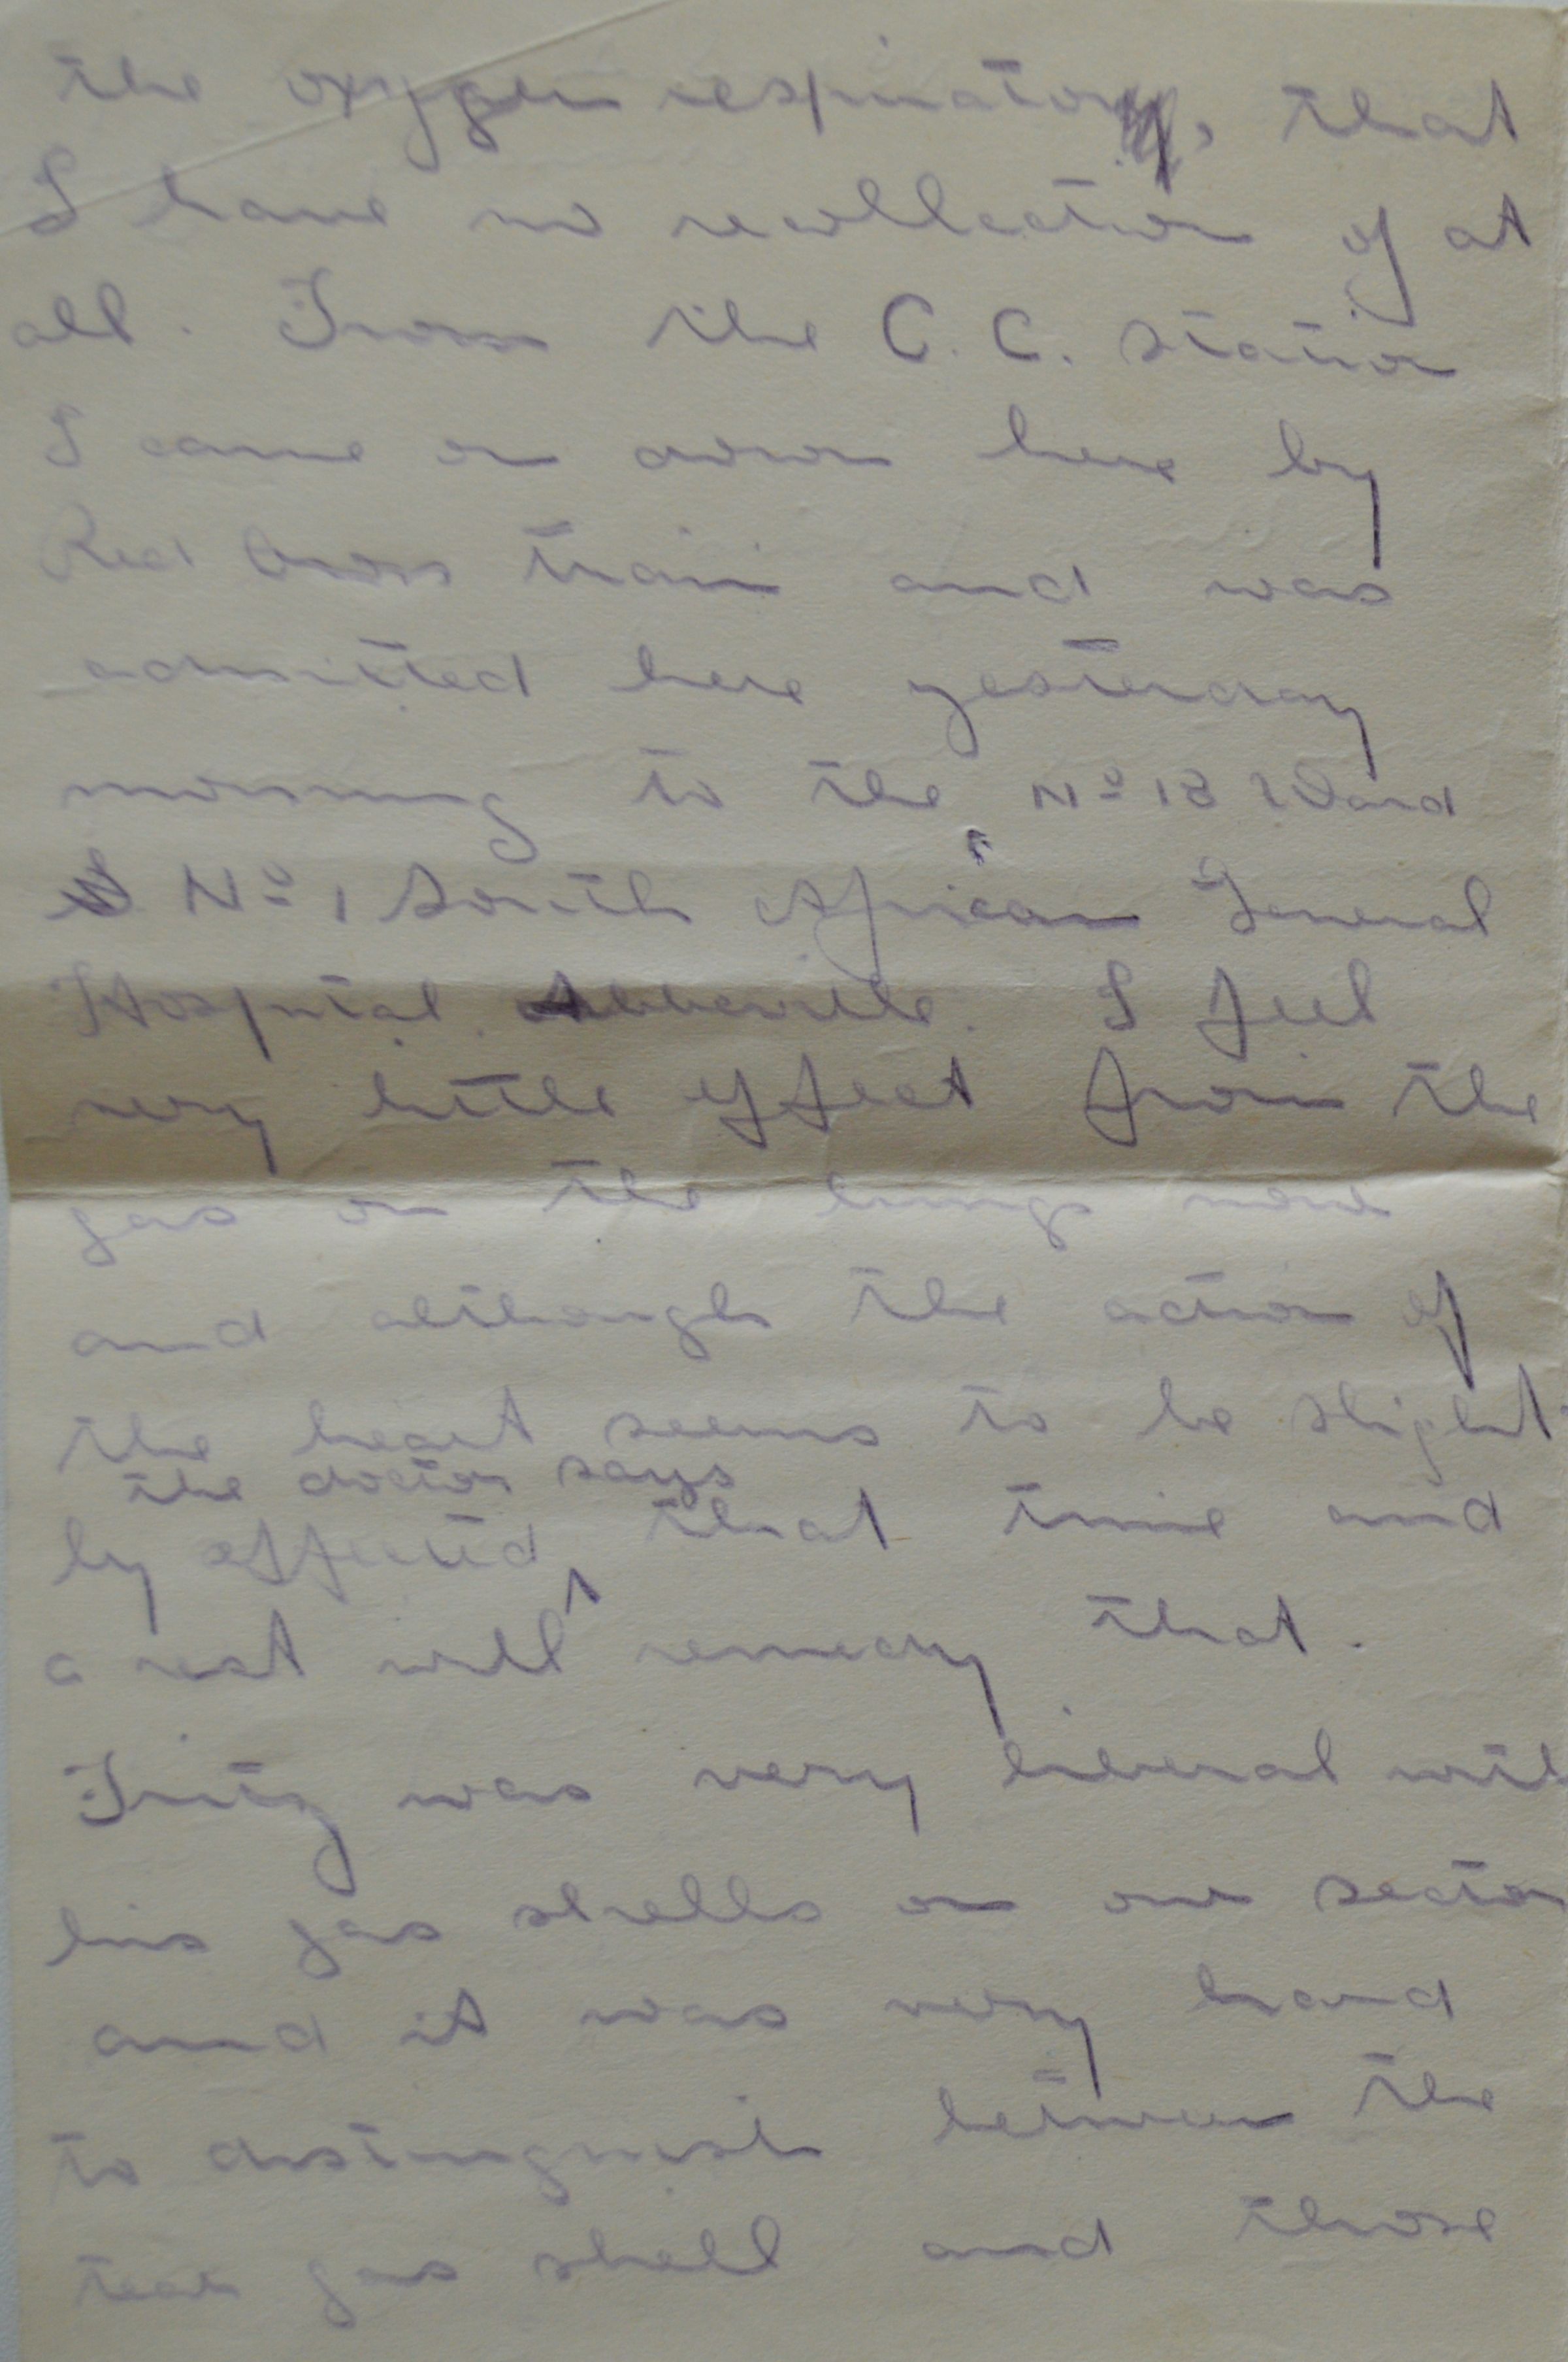 the oxygen respirator, that
I have no recollection of at
all. From the C. C. station
I came on down here by
Red Cross train and was
admitted here yesterday
morning to the Nº 18 Ward
Nº 1 South African General
Hospital. Abbeville. I feel
very little effect from the
gas on the lungs now
and although the action of
the heart seems to be slight-
the doctor says
ly effected ^ that time and
a rest will remedy that.
Fritz was very liberal with
his gas shells on our sector
and it was very hard
to distinguish between the
tear gas shell and those